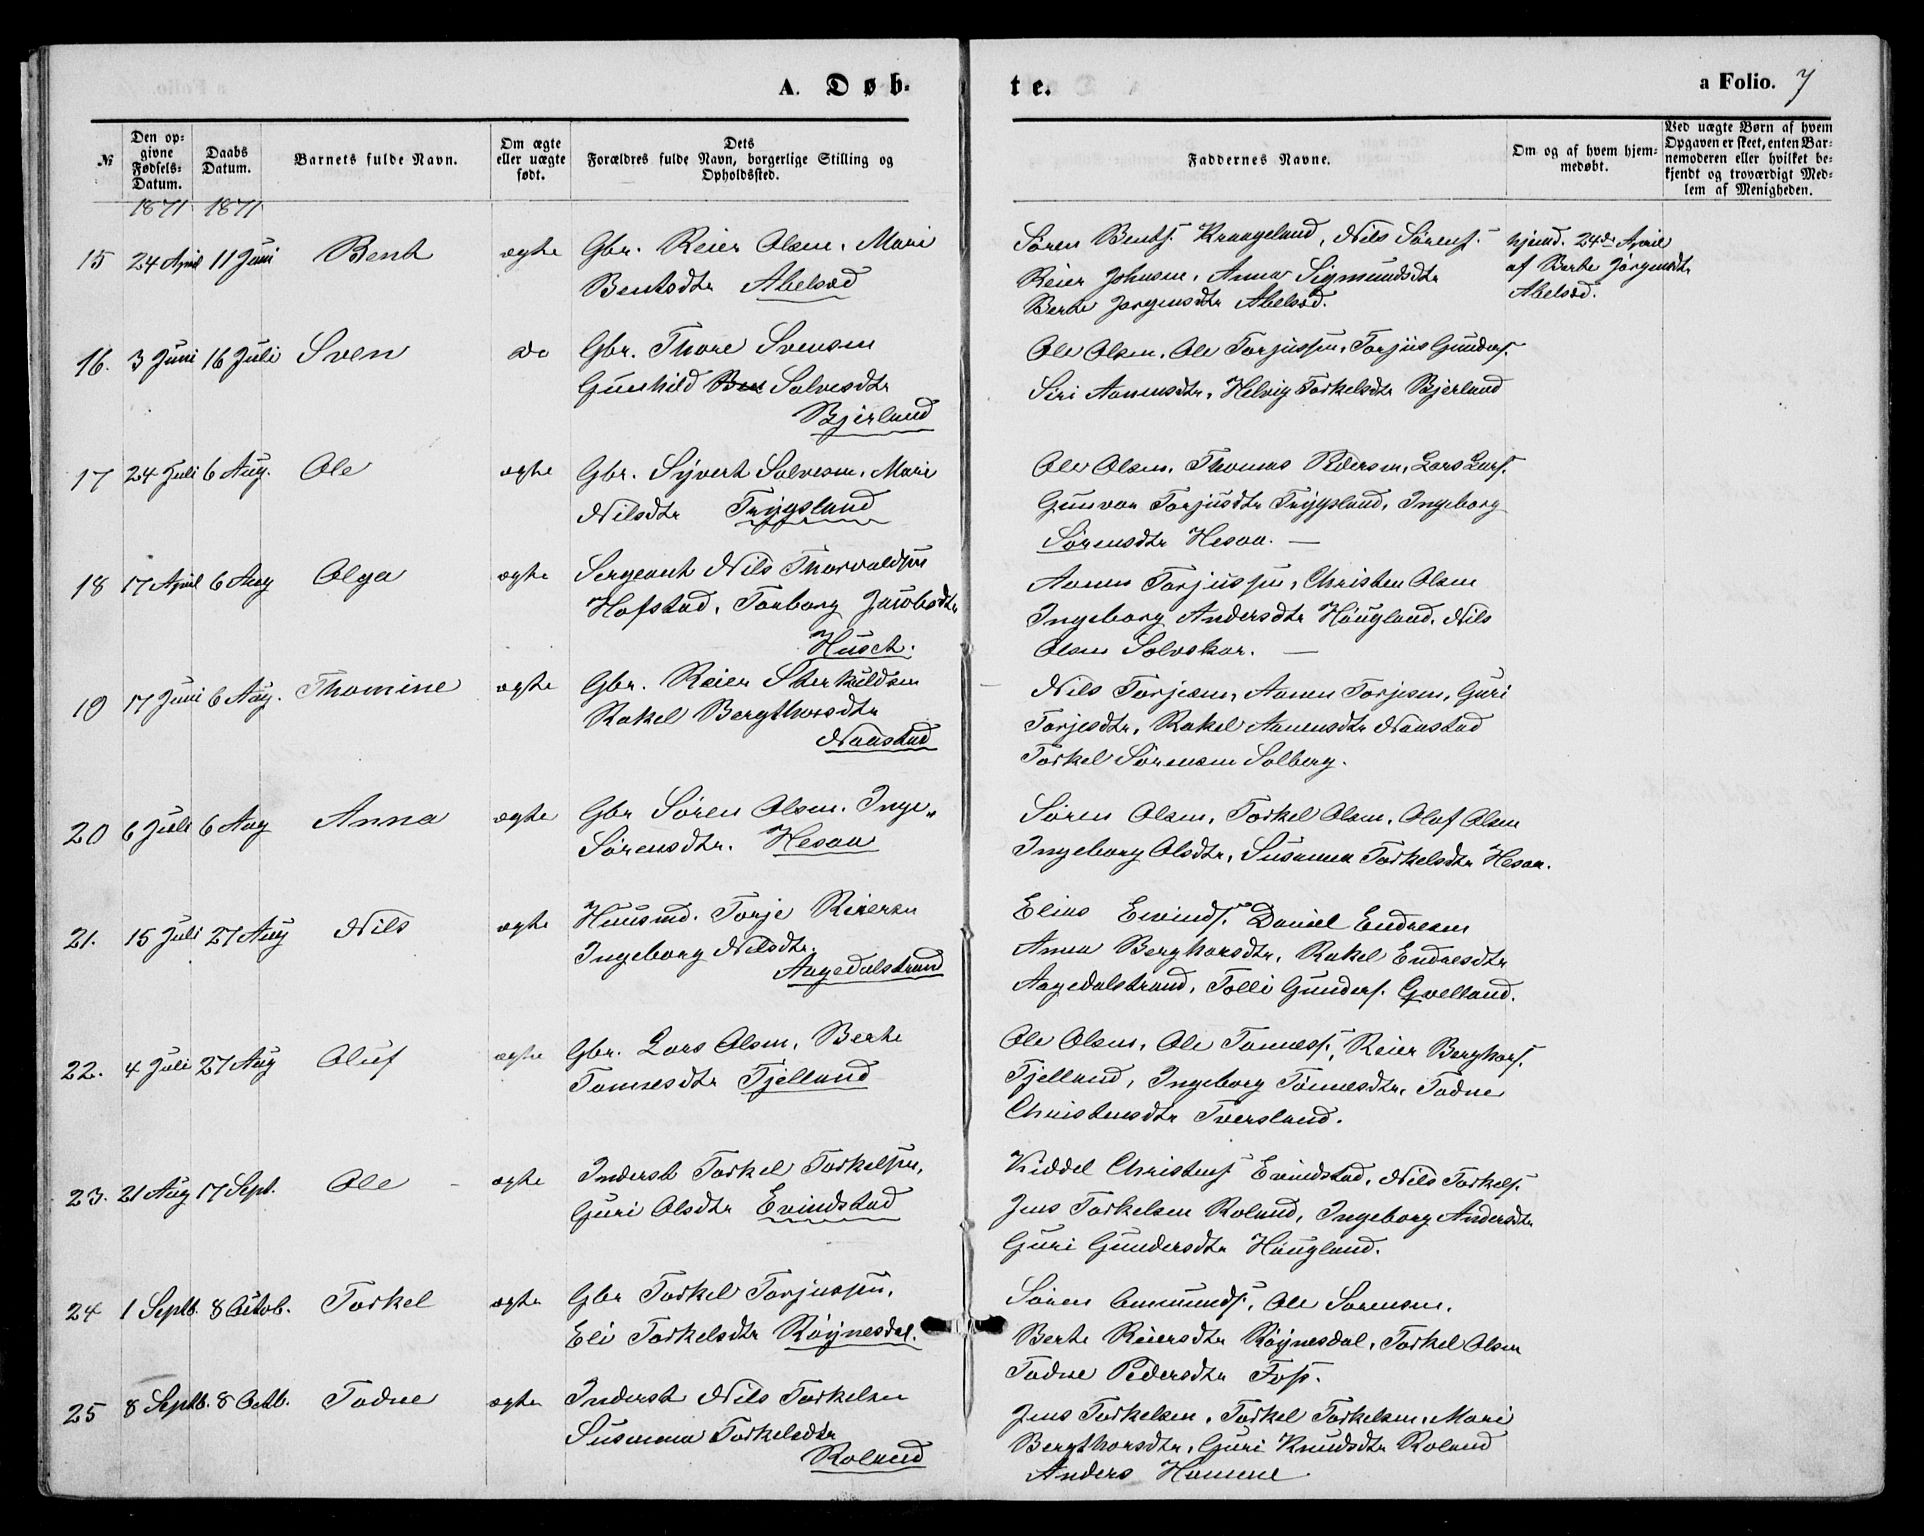 A. Døb-
te.
a Folio. 7
№
Den op-
givne
Fødsels-
Datum.
Daabs
Datum.
Barnets fulde Navn.
Om ægte
eller uægte
født.
Dets
Forældres fulde Navn, borgerlige Stilling og
Opholdssted.
Faddernes Navne.
Om og af hvem hjem-
medøbt.
Ved uægte Børn af hvem
Opgaven er skeet, enten Bar-
nemoderen eller hvilket be-
kjendt og troværdigt Med-
lem af Menigheden.
1871 1871
15 24 April 11 Juni Bent ægte Gbr. Reier Olsen, Mari
Bentsdtr Abelsæd
Søren Bents. Kraageland, Nils Sørens.
Reier Johnsen, Anna Sigmundsdtr
Berte Jørgensdtr Abelsæd.
hjemd. 24de April
af Berte Jørgensdtr
Abelsæd.
16. 3 Juni 16 Juli Sven do Gbr. Thore Svensen
Gunhild Salvesdtr
Bjerland
Ole Olsen, Ole Torjussen, Torjus Gunders.
Siri Aanensdtr, Helvig Torkelsdtr Bjerland
17 24 Juli 6 Aug. Ole ægte Gbr. Syvert Salvesen, Mari
Nilsdtr Trygsland
Ole Olsen, Thomas Pedersen, Lars Lars.
Gunvor Torjusdtr Trygsland, Ingeborg
Sørensdtr Hesaa. —
18 17 April 6 Aug Olga ægte Sergeant Nils Thorvaldsen
Hofstad, Tonborg Jacobsdtr
Husch.
Aanen Torjussen, Christen Olsen
Ingeborg Andersdtr Høugland, Nils
Olsen Solvskar. —
19 17 Juni 6 Aug. Thomine ægte Gbr. Reier Sterkuldsen
Rakel Bergthorsdtr
Naastad
Nils Torjesen, Aanen Torjesen, Guri
Torjesdtr, Rakel Aanensdtr Naastad
Torkel Sørensen Solberg.
20 6 Juli 6 Aug Anna ægte Gbr Søren Olsen. Inge„
Sørensdtr. Hesaa
Søren Olsen, Torkel Olsen, Olaf Olsen
Ingeborg Olsdtr, Susanna Torkelsdtr Hesaa.
21. 15 Juli 27 Aug Nils ægte Huusmd. Torje Reiersen
Ingeborg Nilsdtr.
Aagedalstrand
Elias Eivinds. Daniel Endresen
Anna Berghorsdtr, Rakel Endresdtr
Aagedalstrand, Tolli Gunders. Qvelland.
22. 4 Juli 27 Aug Oluf ægte Gbr. Lars Olsen, Berte
Tønnesdtr Fjelland
Ole Olsen, Ole Tønness, Reier Berghors.
Fjelland, Ingeborg Tønnesdtr, Todne
Christensdtr Tversland.
23. 21 Aug 17 Sept. Ole ægte Inderst Torkel Torkelsen,
Guri Olsdtr Evindstad
Kiddel Christens. Evindstad, Nils Torkels.
Jens Torkelsen Roland, Ingeborg Andersdtr
Guri Gundersdtr Høugland.
24 1 Septb. 8 Octob. Torkel ægte Gbr Torkel Torjussen,
Eli Torkelsdtr Røynesdal.
Søren Omunds., Ole Sørensen,
Berte Reiersdtr Røynesdal, Torkel Olsen
Todne Pedersdtr Foss.
25 8 Septb. 8 Octb. Todne ægte Inderst Nils Torkelsen
Susanna Torkelsdtr
Roland
Jens Torkelsen, Torkel Torkelsen, Mari
Bergthorsdtr, Guri Knudsdtr Roland
Anders Homme.